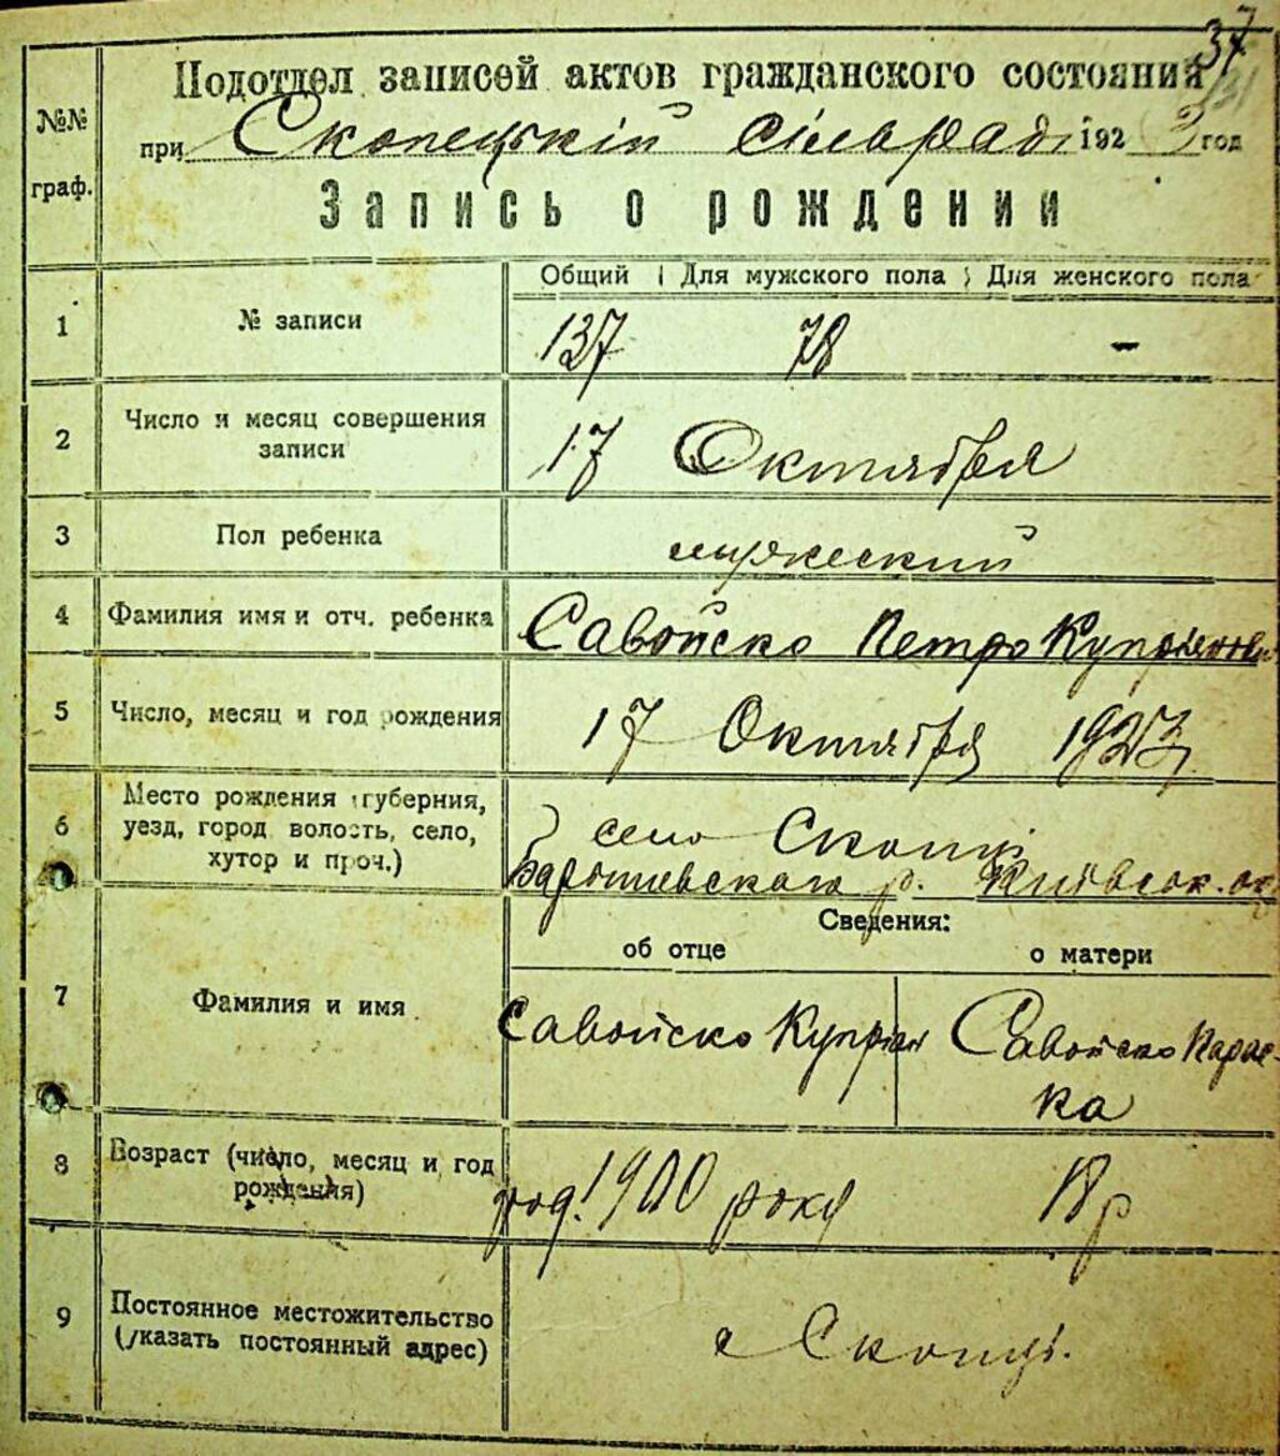 37
Подотдел записей актов гражданского состояния
№№ граф.
при Скопецькій сільраді 1923 год
Запись о рождении
Общий Для мужского пола Для женского пола
1 № записи 137 78 -
2 Число и месяц совершения записи 17 Октября
3 Пол ребенка мужеский
4 Фамилия имя и отч. ребенка Савойско Петро
5 Число, месяц и год рождения 17 Октября 1923
6 Место рождения (губерния, уезд, город волость, село, хутор и проч.) село Скопці
р.
Сведения:
об отце о матери
7 Фамилия и имя Савойско Купріян Савойско Парас-
ка
8 Возраст (число, месяц и год рождения) род. 1900 року 18 р
9 Постоянное местожительство (указать постоянный адрес) с Скопці.